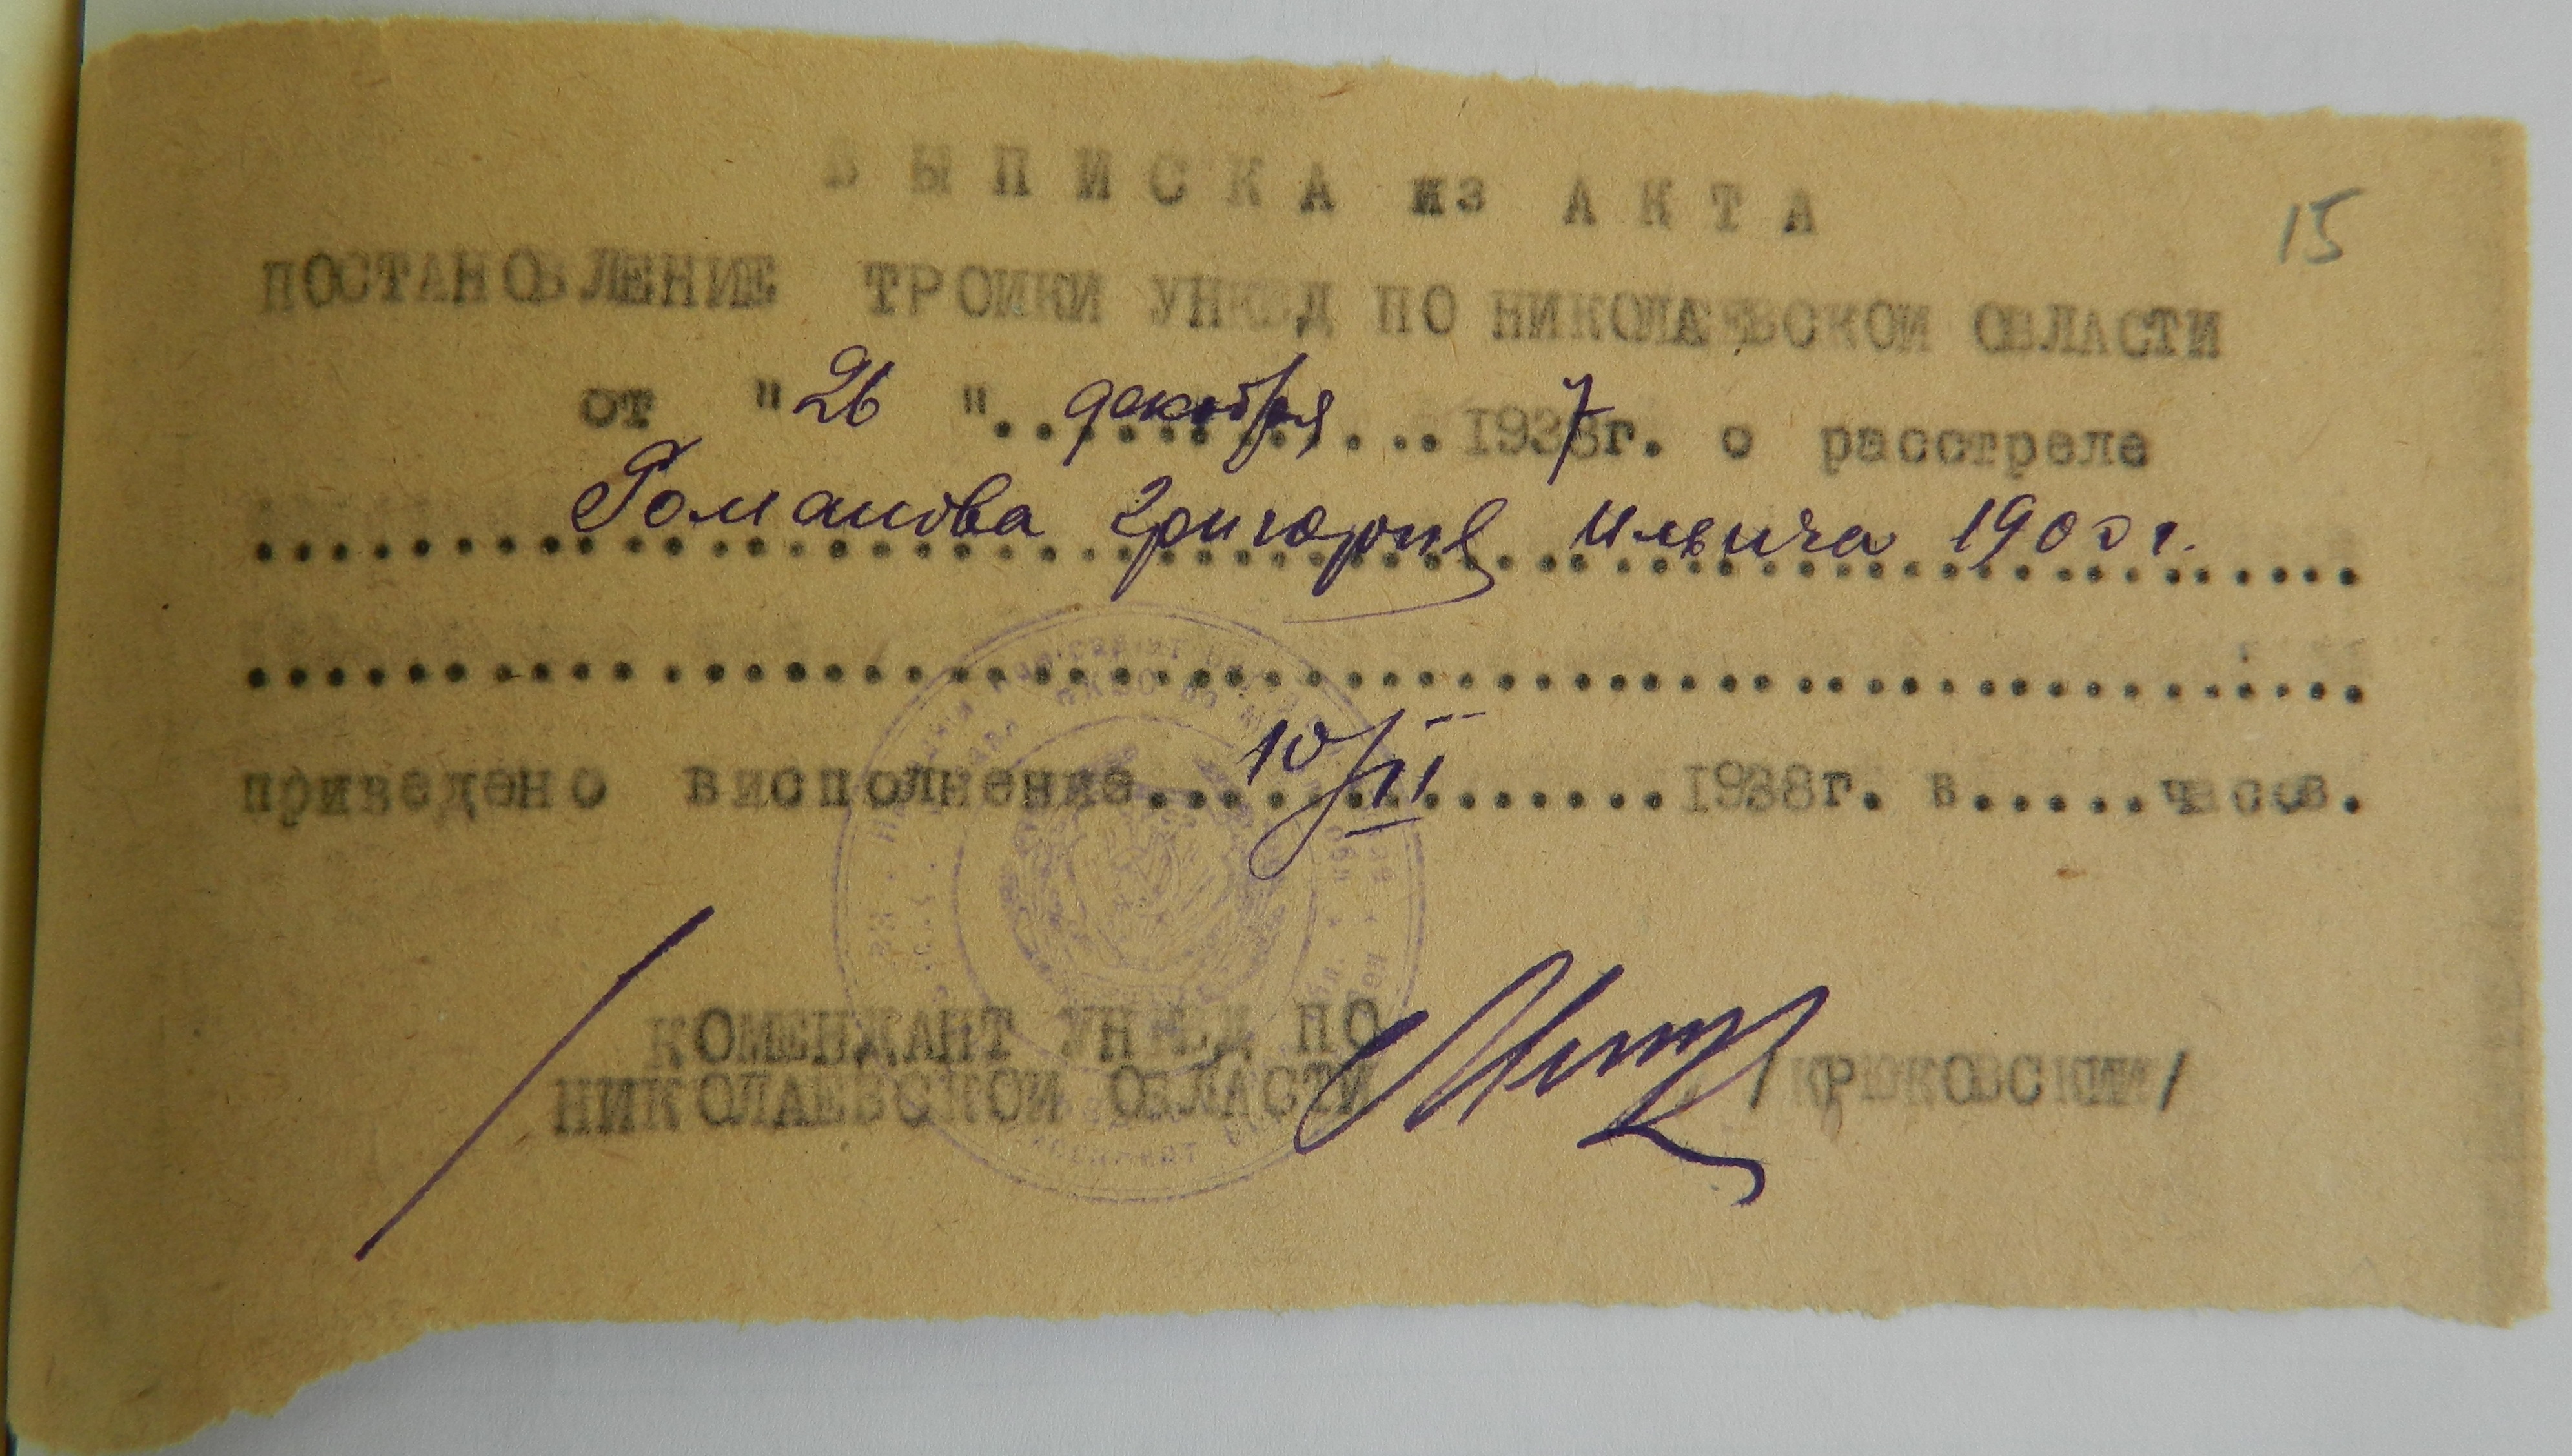 ВЫПИСКА из АКТА
15
ПОСТАНОВЛЕНИЕ ТРОИКИ УНКВД ПО НИКОЛАЕВСКОЙ ОБЛАСТИ
от "26" декабря 1937г. о расстреле
Романова Григория Ильича 1900г.
приведено висполнение 10/II 1938г. в.....часов.
КОМЕНДАНТ УНКВД ПО
НИКОЛАЕВСКОЙ ОБЛАСТИ /КРЮКОВСКИЙ/